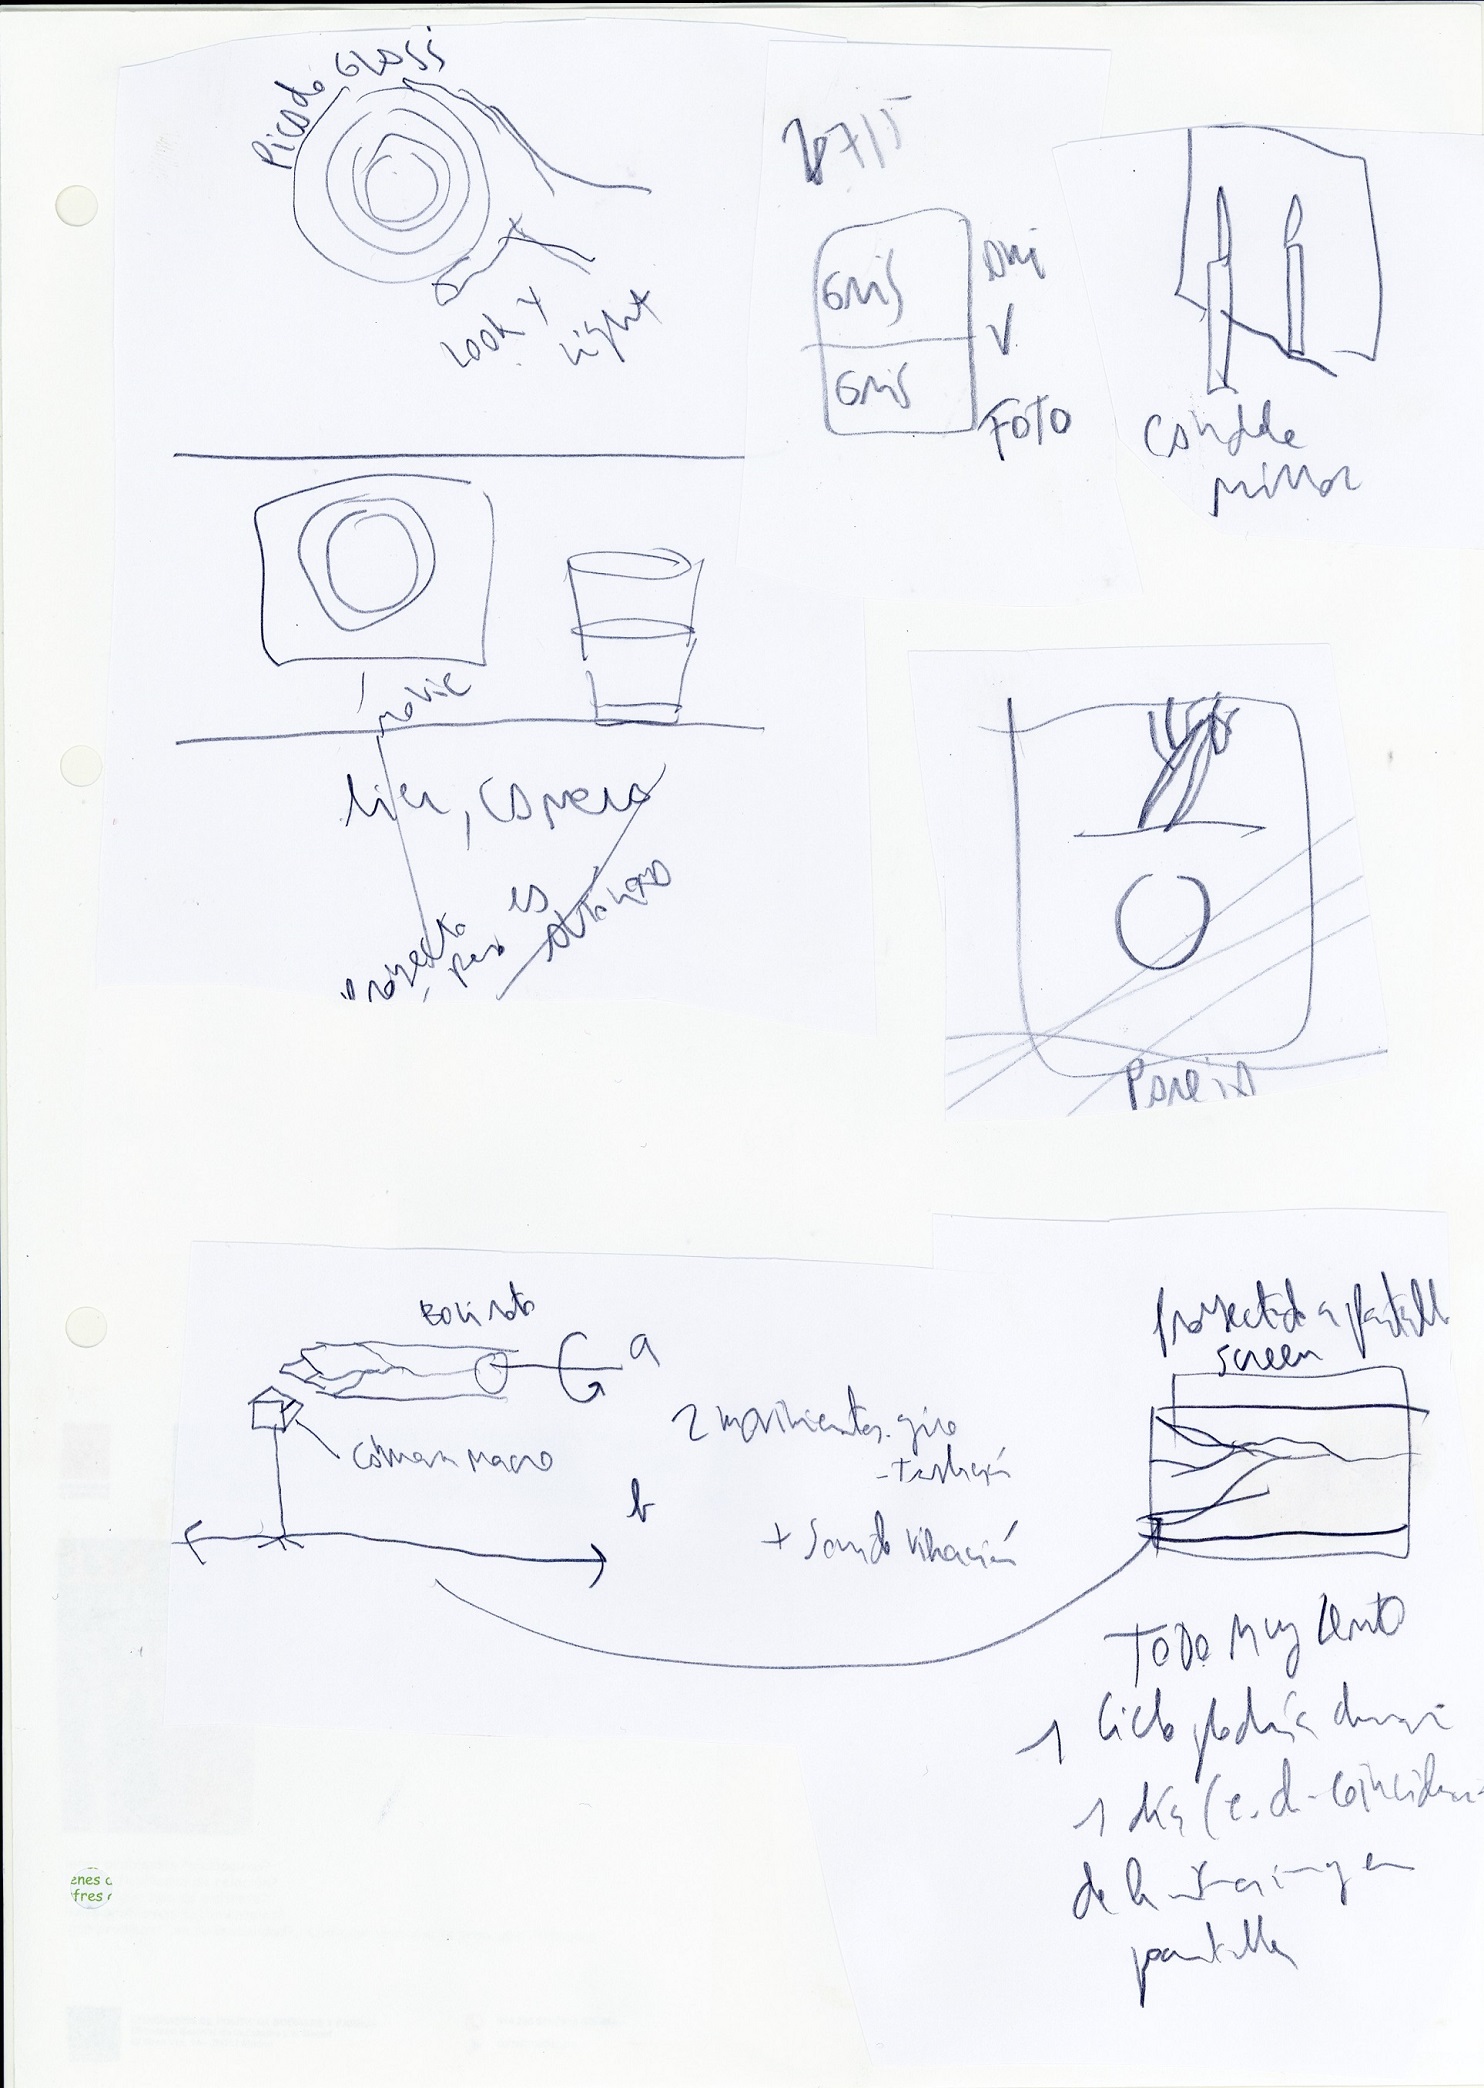 Picado GLASS
Look +
Light
7/5
GRIS
GRIS
V
FOTO
Candle
mirror
movie
, camera
proyecta
pero
es
Pareja
Boli roto
a
Cámara macro
b
2 movimientos. giro
- Traslación
+ Sonido vibración
Proyectado a pantalla
screen
TODO MUY lento
1 Ciclo podría durar
1 día (e.d. coincidencia
de la misma imagen
pantalla
enes c
fres